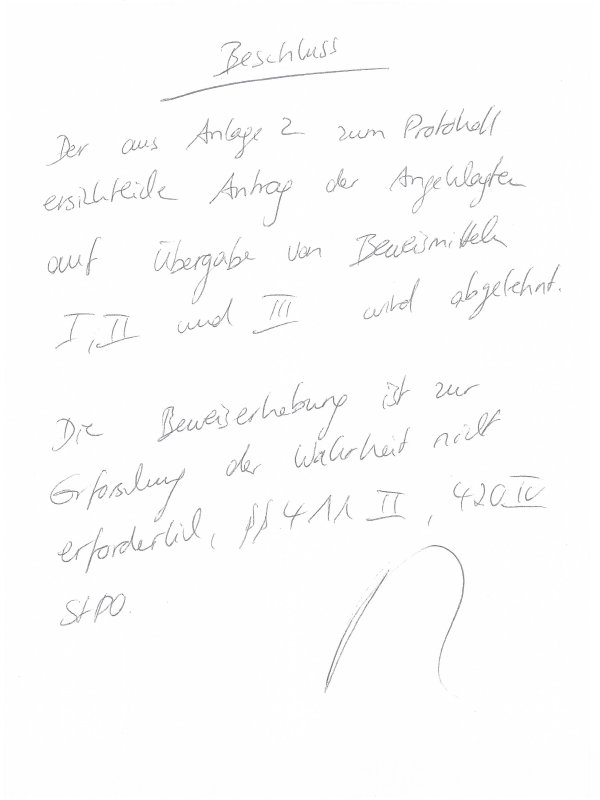 Beschluss
Der aus Anlage 2 zum Protokoll
ersichtliche Antrag der Angeklagten
auf Übergabe von Beweismitteln
I, II und III wird abgelehnt.
Die Beweiserhebung ist zur
Erforschung der Wahrheit nicht
erforderlich, §§ 411 II, 420 IV
StPO.